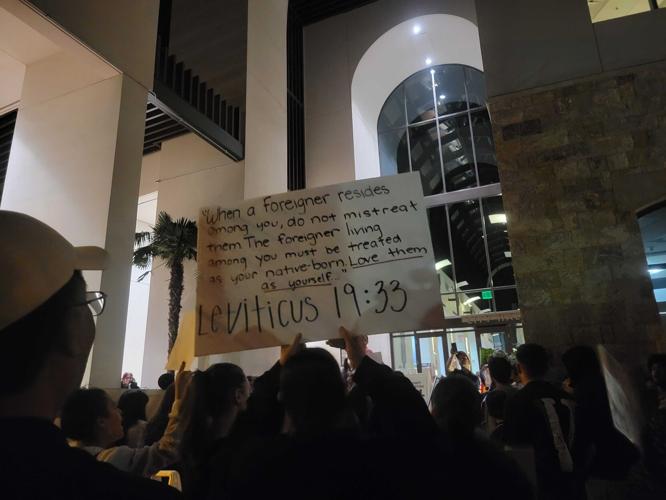 "When a foreigner resides
among you, do not mistreat
them. The foreigner living
among you must be treated
as your native-born. Love them
as yourself."
Leviticus 19:33